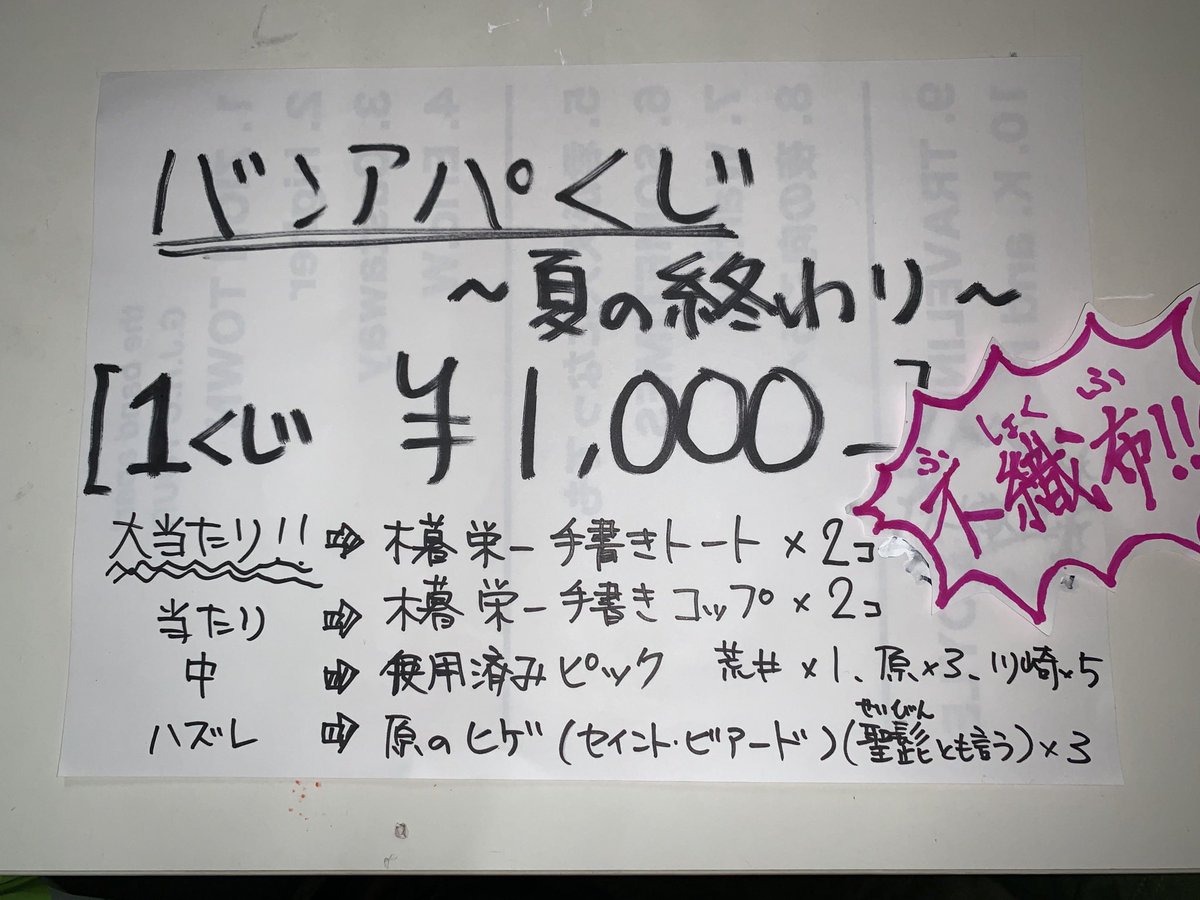 バンアパくじ
～夏の終わり～
[1くじ ¥1,000-]
ふしょくふ
不織布!!
大当たり!! ⇨ 木暮栄一手書きトート×2コ
当たり ⇨ 木暮栄一手書きコップ×2コ
中 ⇨ 使用済みピック 荒井×1、原×3、川崎×5
せいびん
ハズレ ⇨ 原のヒゲ(セイント・ビアード)(聖髭とも言う)×3